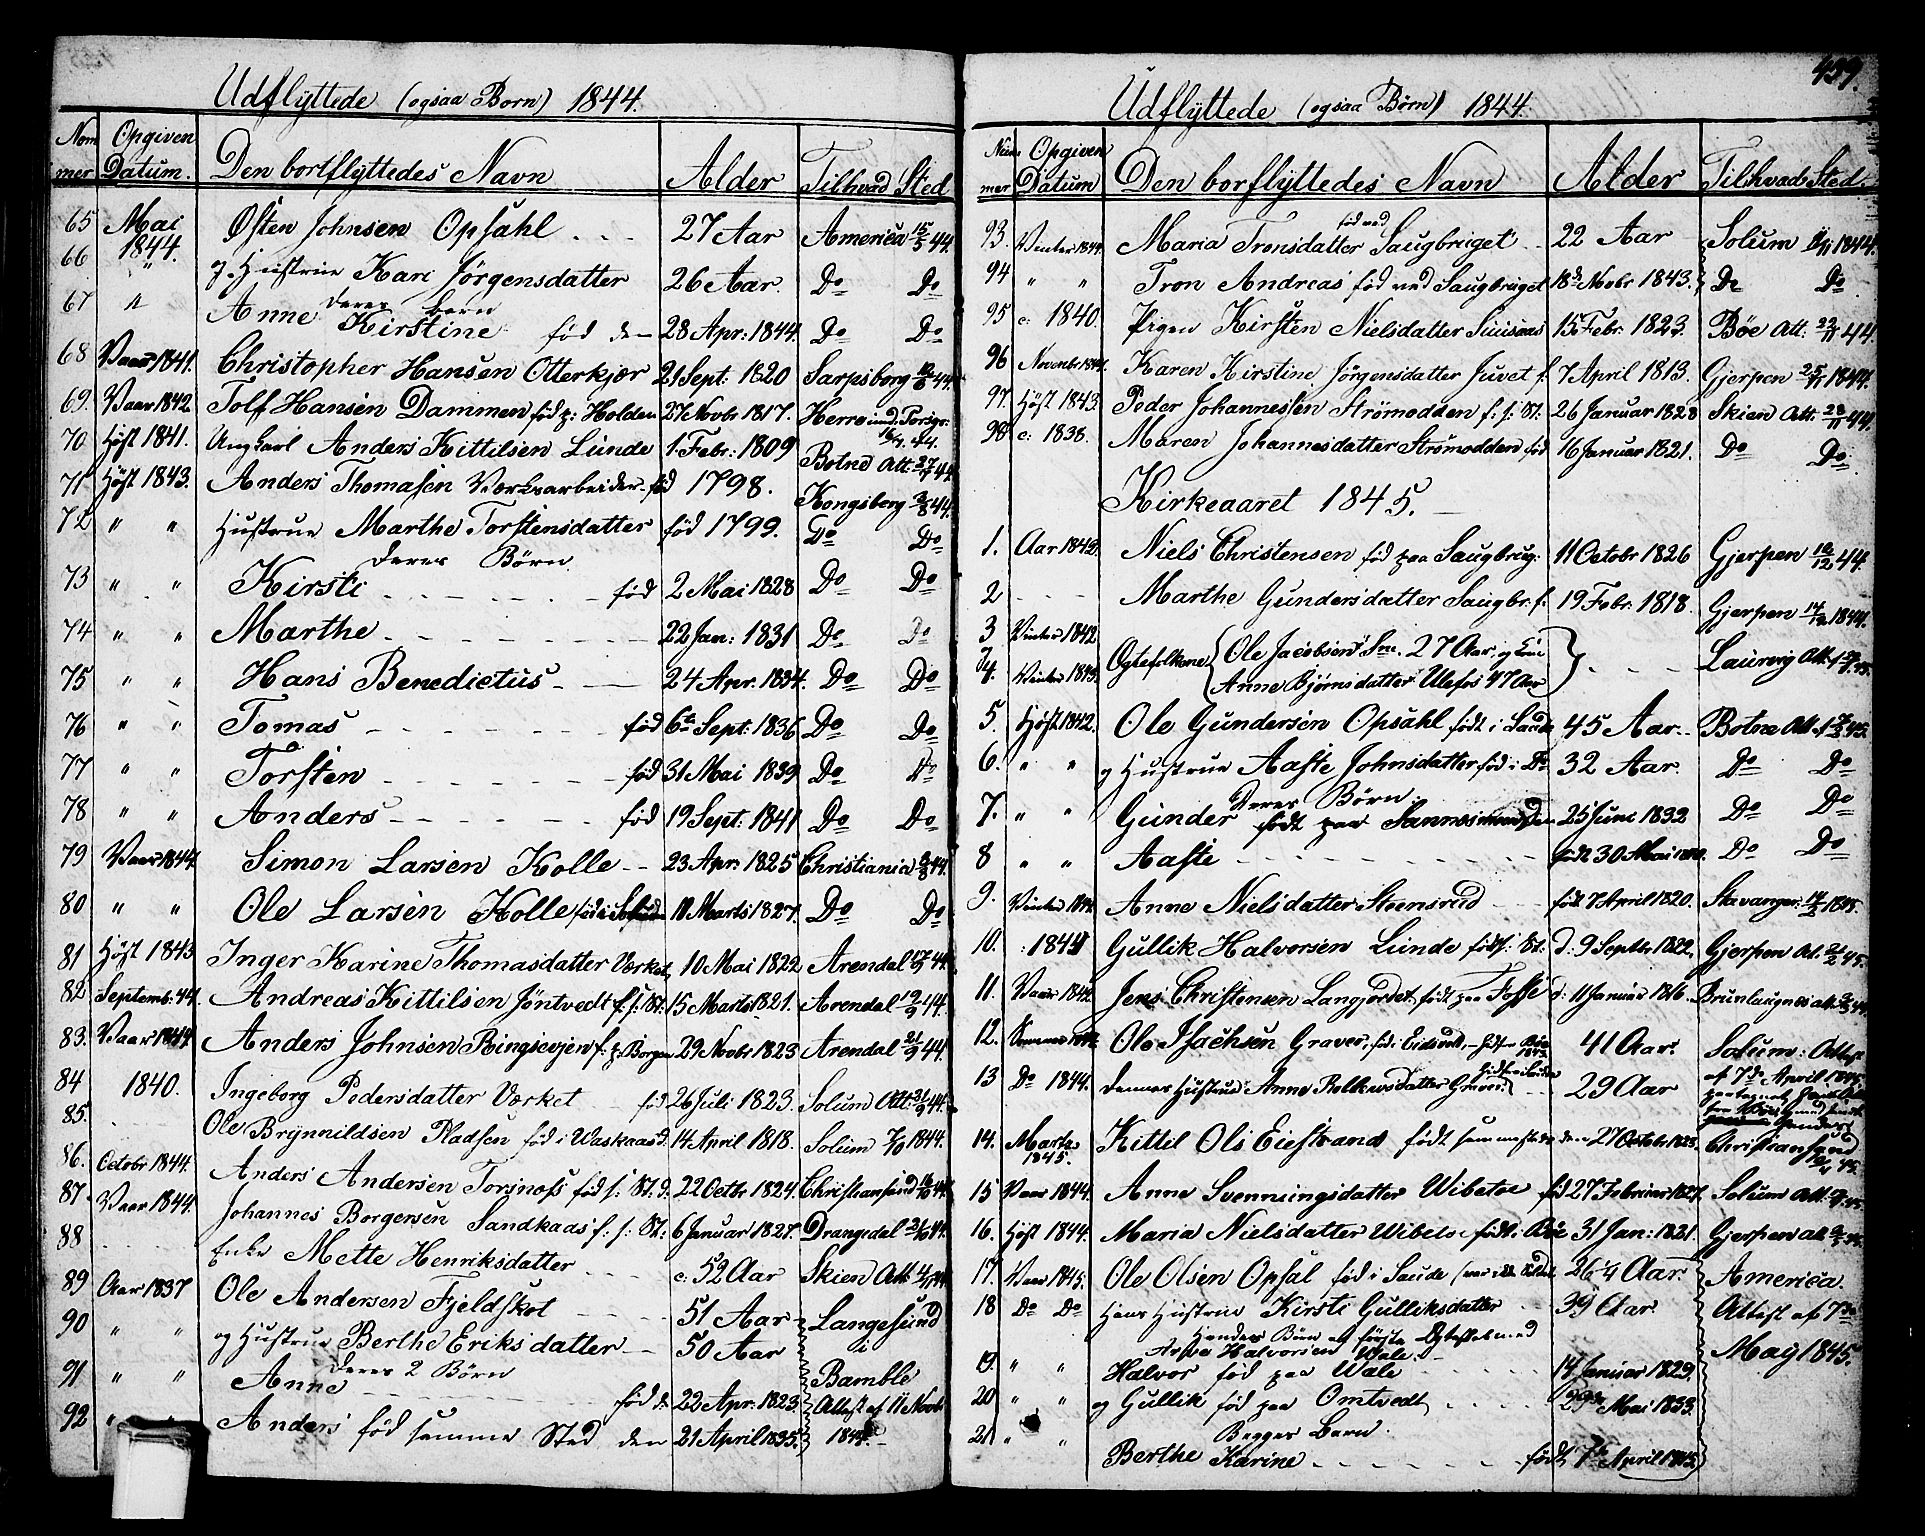 Udflyttede (ogsaa Born) 1844.
Nom mer Opgiven Datum. Den bortflyttedes Navn Alder Tilhvad Sted
65 Mai 1844. Østen Johnsen Opsahl 27 Aar America 15/5 44.
66 " og Hustrue Kari Jørgensdatter 26 Aar. Do Do
deres barn
67 " Anne Kirstine fød den 28 Apr: 1844. Do Do
68 Vaar 1841. Christopher Hansen Otterkjær 21 Sept: 1820 Sarpsborg 44.
69. Vaar 1842. Tolf Hansen Dammen fød p: Holden 27 Novbr 1817. Herre ind. Porsgr:
70 Høst 1841. Ungkarl Anders Kittilsen Lunde 1. Febr: 1809 Botne Att. 44.
71 Høst 1843. Anders Thomasen Værksarbeider fød 1798. Kongsberg 44.
72 " " Hustrue Marthe Torstensdatter fød 1799. Do Do
deres Børn
73 " " Kirsti fød 2 Mai 1828 Do Do
74 " " Marthe 22 Jan: 1831 Do Do
75 " " Hans Benedictus 24 Apr. 1834. Do Do
76 " " Tomas fød 6te Sept: 1836 Do Do
77 " " Torsten fød 31 Mai 1839 Do Do
78 " " Anders fød 19 Sept: 1841 Do Do
79 Vaar 1844. Simon Larsen Kolle 23 Apr: 1825 Christiania 44.
80 " " Ole Larsen Kolle fød i 11 Marts 1827. Do Do
81 Høst 1843 Inger Karine Thomasdatter Værket 10 Mai 1822 Arendal 44
82 Septemb: 44. Andreas Kittilsen Jøntvedt f. f: St: 15 Marts 1821. Arendal 19/9 44.
83. Vaar 1844. Anders Johnsen Ringsevjen f: p: Borgen 29 Novbr 1823 Arendal 21/9 44.
84 1840. Ingeborg Pedersdatter Værket fød 26 Juli 1823. Solum Att: 44.
85. Ole Brynnildsen Pladsen fød i Waskaasd. 14 April 1818. Solum 1844.
86. Octobr 1844. Anders Andersen Torsnoss fød f: St: d: 22 Octbr 1824. Christiansand 44
87. Vaar 1844. Johannes Borgersen Sandkaas f: f: St: 6 Januar 1827. Drangedal 44.
88 Enke Mette Henriksdatter c. 52 Aar Skien Att
89 Aar 1837 Ole Andersen Fjeldskot 51 Aar Langesund
90 " " og Hustrue Berthe Eriksdatter 50 Aar i
deres 2 Børn
91 " " Anne fød d: 22 Apr: 1823. Bamble Attest af 11 Novbr
92 " " Anders fød samme Sted den 21 April 1835. 1844.
459.
Udflyttede (ogsaa Børn) 1844.
Num mer Opgiven Datum Den borflyttedes Navn Alder Tilhvad Sted.
93. Vinter 1844. Maria Tronsdatter fød ved Saugbruget 22 Aar Solum 1844.
94 " " Tron Andreas fød ved Saugbruget 18de Novbr 1843. Do Do
95 c: 1840. Pigen Kirsten Nielsdatter 15 Febr. 1823. Bøe Att. 22/11 44
96 Novembr 1844. Karen Kirstine Jørgensdatter Juvet f. 7 April 1813. Gjerpen 25/11 1844.
97. Høst 1843. Peder Johannessen Strömodden f: f: St. 26 Januar 1828 Skien Att. 28/11 44.
98 c: 1838. Maren Johannesdatter Strømodden fød 16 Januar 1821. Do Do
Kirkeaaret 1845.
1. Aar 1843. Niels Christensen fød paa Saugbrug: 11 Octobr 1826 Gjerpen 10/12 44.
2 Marthe Gundersdatter Saugbr: f: 19 Febr. 1818. Gjerpen 14/12 1844.
3 Vinter 1842. Ægtefolkene Ole Jacobsen 27 Aar og
4. Vinter 1843. Anne Bjørnsdatter Ulefos 47 Aar Laurvig Att.
5. Høst 1842. Ole Gundersen Opsahl født i Saude 45 Aar. Botne Att.
6. " " og Hustrue Aaste Johnsdatter fød i Do 32 Aar. Do Do
deres Børn.
7. " " Gunder født paa 25 Juni 1832 Do Do
8 " " Aaste født 30 Mai Do Do
9. Vinter Anne Nielsdatter Steensrud født 7 April 1820. Stavanger
10. : 1844 Gullik Halvorsen Lunde født f: St. d: 9 Septbr 1822. Gjerpen At. 45.
11. Vaar Jens Christensen Langjordet født paa Fosse d: 11 Januar 1816. Brunlaugnes att
12. Sommer Ole Isachsen Graver, fød i Eidsvold, 41 Aar. Solum: Attest
13 Do 1844. dennes Hustrue Anne 29 Aar af 7de April 1845
14. Marts 1845. Kittil Ols Eiestrand født sammesteds den 27 Octobr 1823. Christiansand 45.
15 Vaar 1844. Anne Svenningsdatter Wibetoe fød 27 Februar 1827. Solum Att.
16. Høst 1844. Maria Nielsdatter Wibeto født i Bøe 31 Jan: 1821. Gjerpen att
17. Vaar 1845. Ole Olsen Opsal fød i Saude 26¼ Aar. America.
18 Do Do Hans Hustrue Kirsti Gulliksdatter 39 Aar. Attest af 7de
Hendes Børn af første Ægteskab med Halvorsen Wale. May 1845.
19. " " Halvor fød paa Wale 14 Januar 1829.
20 " " og Gullik fød paa Omtvedt 29de Mai 1833.
Begges Barn.
21 " " Berthe Karine født 7de April 1845